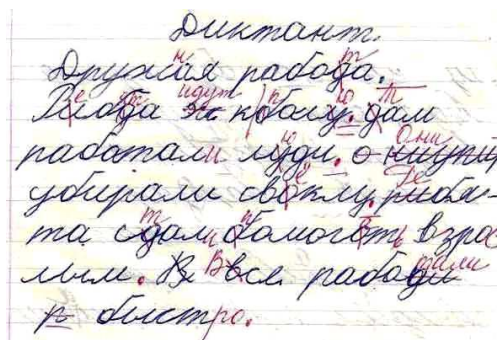 Диктант.
Дружая рабода.
к болу. дам
работали люди.
убирали свёклу. Ребя-
та сдали бомогать взрос
лым. Все рабодали
быстро.